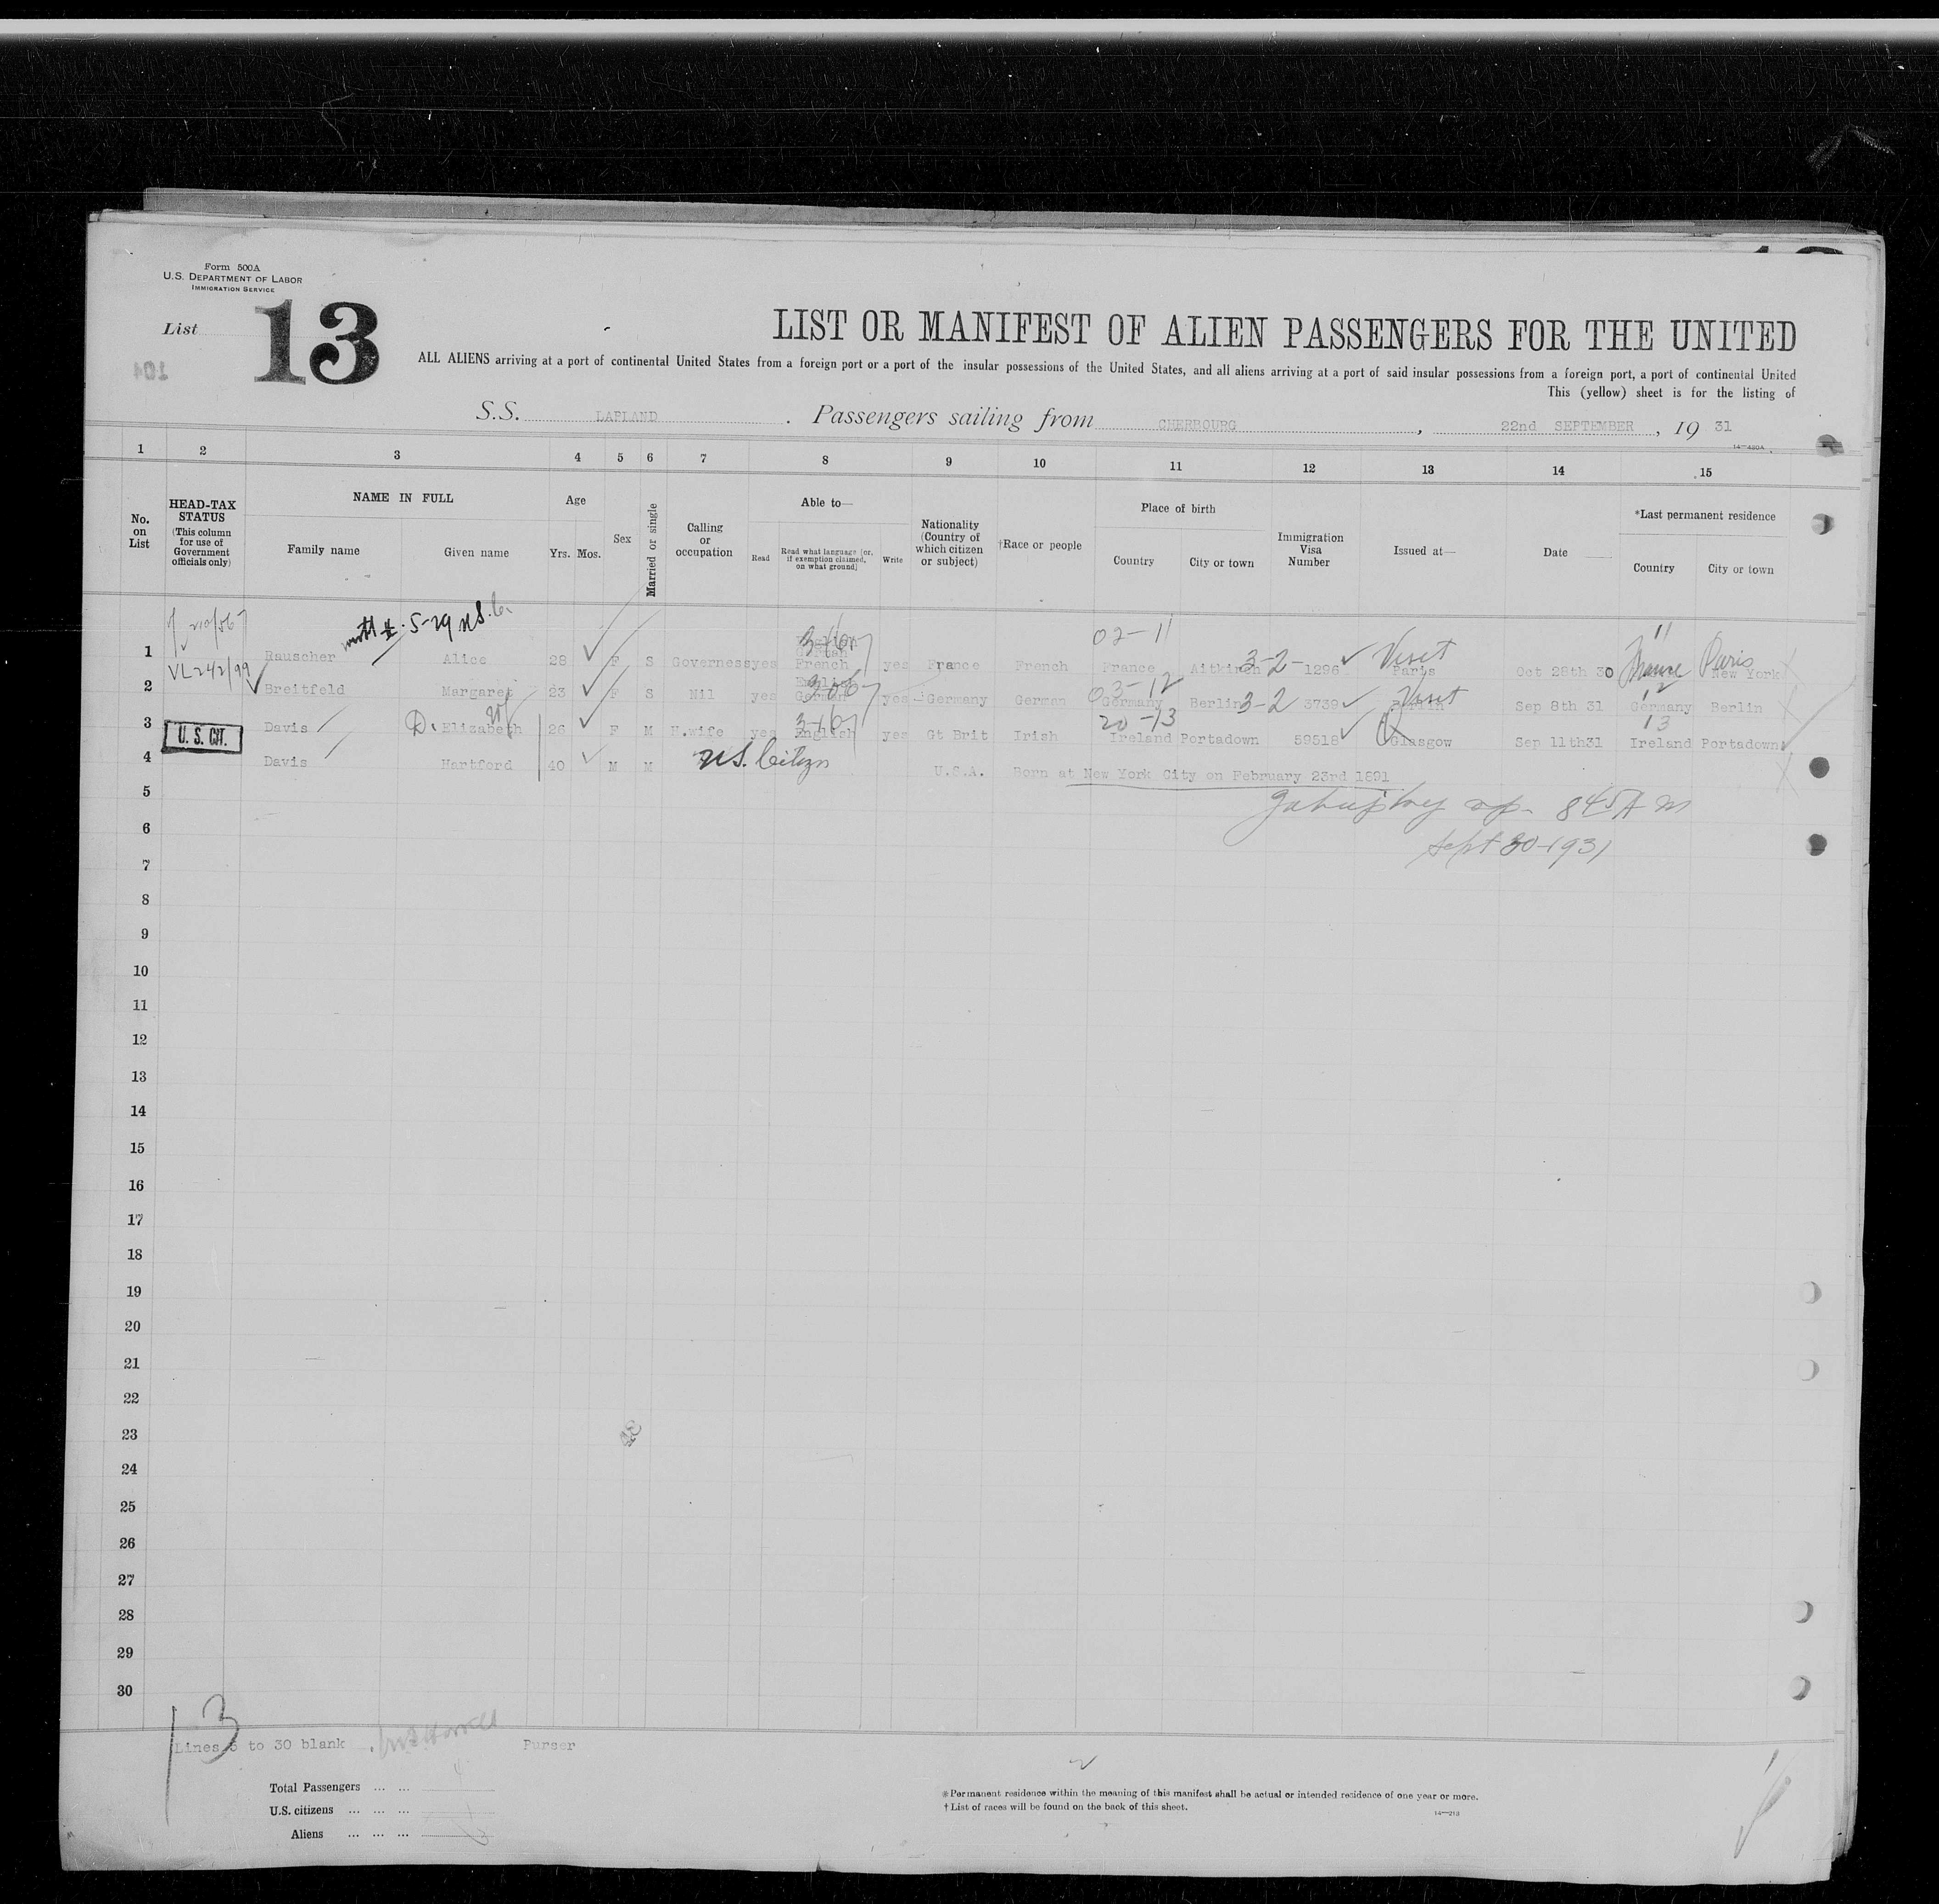 Form 500A
U.S. DEPARTMENT OF LABOR
IMMIGRATION SERVICE
List 13
104
LIST OR MANIFEST OF ALIEN PASSENGERS FOR THE UNITED
ALL ALIENS arriving at a port of continental United States from a foreign port or a port of the insular possessions of the United States, and all aliens arriving at a port of said insular possessions from a foreign port, a port of continental United
This (yellow) sheet is for the listing of
S.S. LAPLAND . Passengers sailing from CHERBOURG , 22nd SEPTEMBER , 19 31
14—430A
1 2 3 4 5 6 7 8 9 10 11 12 13 14 15
No. on List
HEAD-TAX STATUS (This column for use of Government officials only)
NAME IN FULL
Family name Given name
Age
Yrs. Mos.
Sex
Married or single
Calling or occupation
Able to—
Read Read what language [or, if exemption claimed, on what ground] Write
Nationality (Country of which citizen or subject)
†Race or people
Place of birth
Country City or town
Immigration Visa Number
Issued at—
Date
*Last permanent residence
Country City or town
5-29 U.S.
02-11 11
1 Rauscher Alice 28 F S Governess yes French yes France French France 3-2- 1296 Visit Paris Oct 28th 30 France Paris New York
VL242/99
03-12 12
2 Breitfeld Margaret 23 F S Nil yes English German yes Germany German Germany Berlin 3-2 3739 Visit Berlin Sep 8th 31 Germany Berlin
20-13 13
3 U.S. CIT. Davis D. Elizabeth 26 F M H.wife yes English yes Gt Brit Irish Ireland Portadown 59518 Glasgow Sep 11th31 Ireland Portadown
4 Davis Hartford 40 M M U.S. Citizen U.S.A. Born at New York City on February 23rd 1891
5 845 A M
6 Sept 30-1931
7
8
9
10
11
12
13
14
15
16
17
18
19
20
21
22
23
24
25
26
27
28
29
30
13
Lines 5 to 30 blank Purser
Total Passengers ... ... 4
U.S. citizens ... ... ...
Aliens ... ... ...
*Permanent residence within the meaning of this manifest shall be actual or intended residence of one year or more.
†List of races will be found on the back of this sheet.
14—213